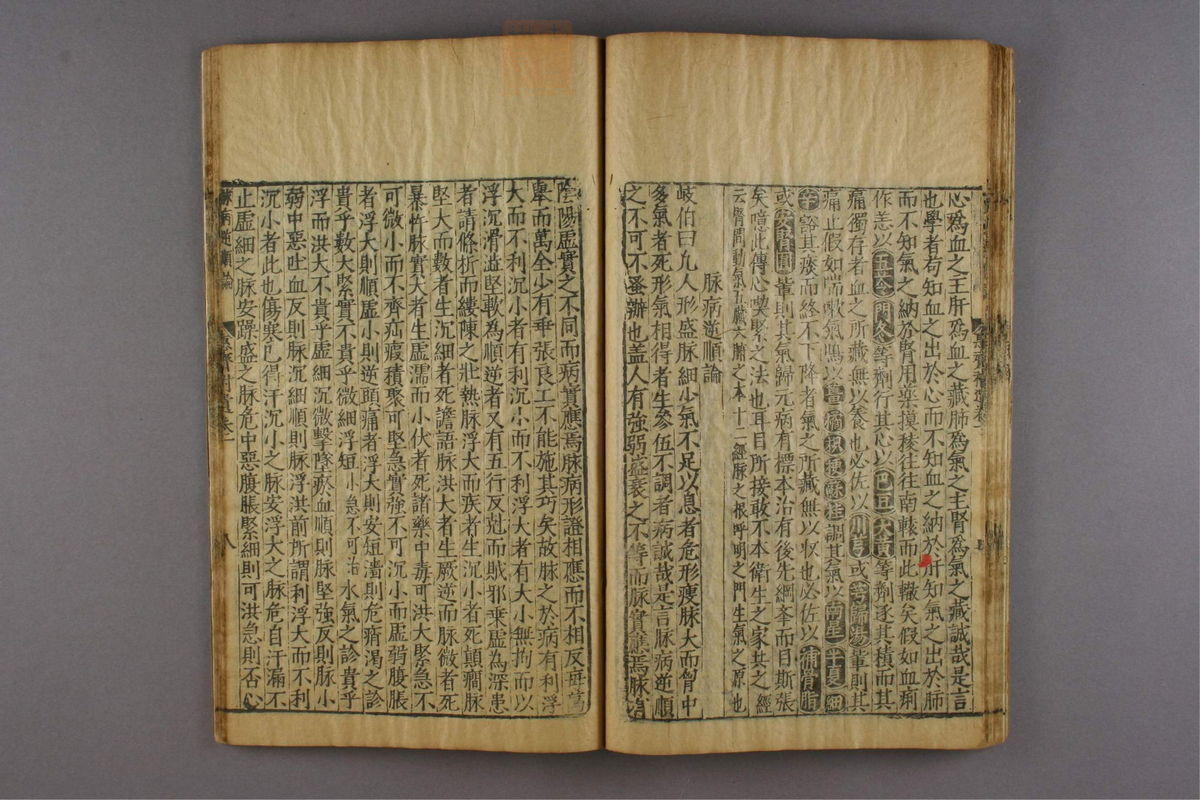 心為血之主肝為血之藏肺為氣之主腎為氣之藏誠哉是言
也學者苟知血之出於心而不知血之納於肝知氣之出於肺
而不知氣之納於腎用藥摸稜往往南轅而北轍矣假如血痢
作恙以五苓門冬等劑行其心以巴豆大黃等劑逐其積而其
痛獨存者血之所藏無以養也必佐以川芎或芎歸湯輩則其
痛止假如喘嗽氣鳴以橘枳梗蘇桂調其氣以南星半夏細
辛豁其痰而終不下降者氣之所藏無以収也必佐以補骨脂
或安腎圓輩則其氣歸元病有標本治有後先綱挙而目斯張
矣噫此傳心喫緊之法也耳目所接敢不本衛生之家共之經
云腎間動氣五臟六腑之本十二經脉之根呼吸之門生氣之原也
脉病逆順論
岐伯曰凡人形盛脉細少氣不足以息者危形瘦脉大而胷中
多氣者死形氣相得者生參伍不調者病誠哉是言脉病逆順
之不可不蚤辦也盖人有強弱盛衰之不等而脉實應焉脉有
陰陽虛實之不同而病實應焉脉病形證相應而不相反毎萬
舉而萬全少有乖張良工不能施其巧矣故脉之於病有利浮
大而不利沉小者有利沉小而不利浮大者有大小無拘而以
浮沉滑澁堅軟為順逆者又有五行反剋而賊邪乗虛為深患
者請條折而縷陳之壯熱脉浮大而疾者生沉小者死顛癎脉
堅大而數者生沉細者死譫語脉洪大者生厥逆而脉微者死
暴忤脉實大者生虛濡而小伏者死諸藥中毒可洪大緊急不
可微小而不齊疝瘕積聚可堅急實強不可沉小而虛弱腹脹
者浮大則順虛小則逆頭痛者浮大則安短濇則危瘠渴之診
貴乎數大緊實不貴乎微細浮短小急不可治水氣之診貴乎
浮而洪大不貴乎虛細沉微擊墜瘀血順則脉堅強反則脉小
弱中惡吐血反則脉沉細順則脉浮洪前所謂利浮大而不利
沉小者此也傷寒已得汗沉小之脉安浮大之脉危自汗漏不
止虛細之脉安躁盛之脉危中惡腹脹緊細則可洪急則否心
脉病逆順論
八